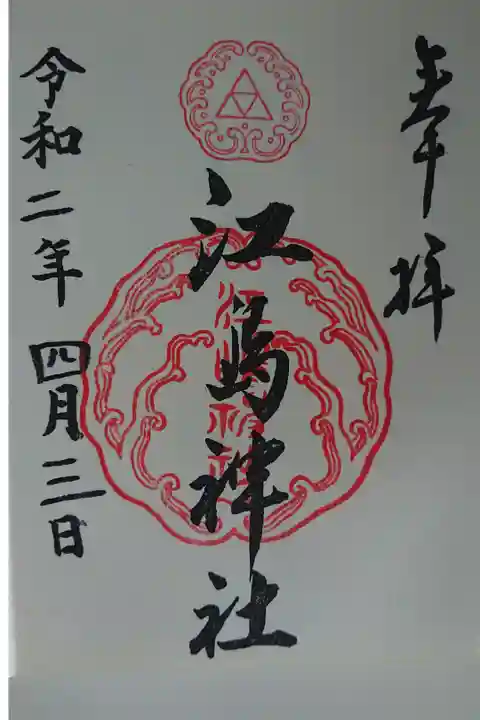 奉拝
江島神社
令和二年四月三日